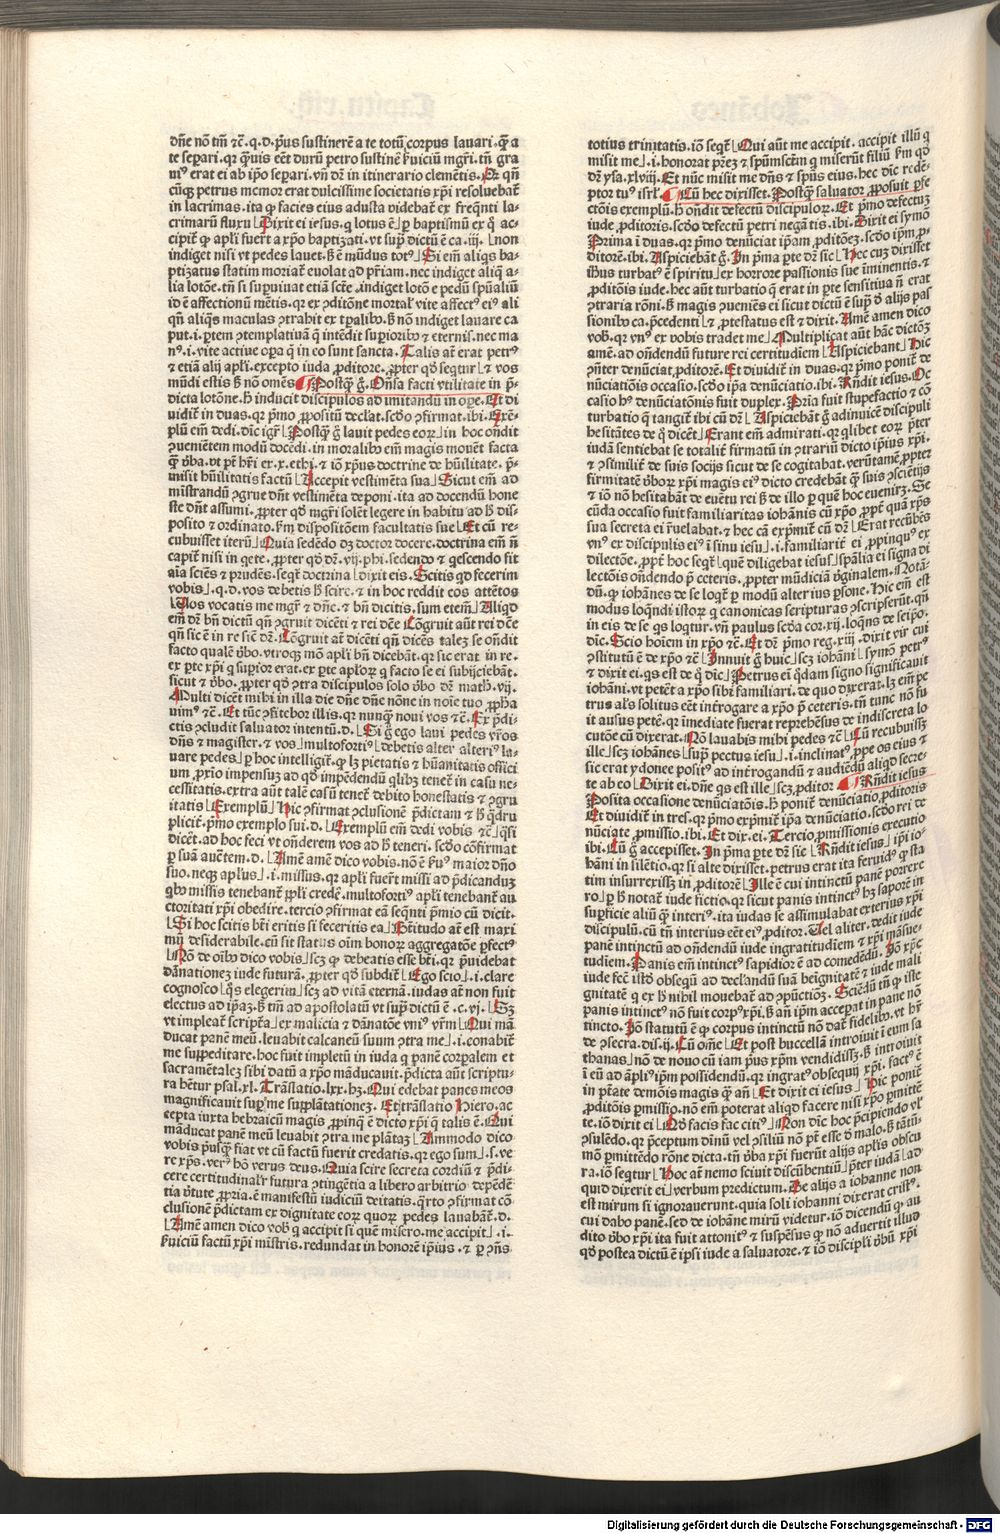 dn̄e nō tm̄ ⁊c̄. q.d. p̄us sustinerē a te totū corpus lauari. q̄ȝ a
te separi. qꝛ q̄uis eēt durū petro sustinē ẜuiciū mgr̄i. tn̄ gra
niꝰ erat ei ab ip̄o separi. vn̄ dꝛ in itinerario clemētis. Qꝛ qn̄
cūqꝫ petrus memor erat dulcissime societatis xp̄i resoluebat̄
in lacrimas. ita ꝙ facies eius adusta videbat̄ ex freq̄nti la-
crimarū fluxu Dixit ei iesus. q lotus ē ꝑ baptismū ex q̊ ac-
cipit̄ ꝙ apl̄i fuert̄ a xp̄o baptiȝati. vt sup̄ dictū ē ca. iij. non
indiget nisi vt pedes lauet. ß ē mūdus totꝰ Si em̄ aliqs ba-
ptiȝatus statim moriat̄ euolat ad pr̄iam. nec indiget aliq̄ a-
lia lotōe. tn̄ si supuiuat etiā sct̄e. indiget lotō e pedū spūaliū
id ē affectionū mētis. qꝛ ex ꝯditōne mortal' vite affectꝰ eiꝰ ali
qn̄ aliq̄s maculas ꝯtrahit ex tꝑalibꝰ. ß nō indiget lauare ca
put. i. ꝑtem ꝯtemplatiuā q̄ intēdit supioribꝰ ⁊ eternis. nec ma
nꝰ. i. vite actiue oꝑa q̄ in eo sunt sancta. Talis at̄ erat petrꝰ
⁊ etiā alij apl̄i. excepto iuda ꝓditore. ꝓpter qd̄ seqtur ⁊ vos
mūdi estis ß nō omēs Postq̄ȝ g̊. Oñsa facti vtilitate in p̄-
dicta lotōne. hꝰ inducit discipulos ad imitandū in oꝑe. Et di
uidit̄ in duas. qꝛ pmo ꝓpositū declat. scd̄o ꝯfirmat. ibi. Exē-
plū em̄ dedi. dic̄ igr̄ Postq̄ȝ g̊ lauit pedes eoꝝ in hoc oñdit
ꝯuenietem modū docēdi. in moralibꝰ em̄ magis mouēt facta
q̄ȝ v̄ba. vt pꝫ hr̄i ex. x. ethi. ⁊ iō xp̄us doctrine de hūilitate. p̄-
misit hūilitatis factū Accepit vestimēta sua Sicut em̄ ad
mistrandū ꝯgrue dn̄t vestimēta deponi. ita ad docendū hone
ste dn̄t assumi. ꝓpter qd̄ mgr̄i solēt legere in habitu ad hꝰ dis-
posito ⁊ ordinato. ẜm dispositōem facultatis sue Et cū re-
cubuisset iterū Quia sedēdo dꝫ doctor docere. doctrina em̄ n̄
capit̄ nisi in qete. ꝓpter qd̄ dꝛ. vij. phi. sedendo ⁊ qescendo fit
aīa sciēs ⁊ prudēs. seqt̄ doctrina dixit eis. Scitis qd̄ fecerim
vobis. q.d. vos debetis hꝰ scire. ⁊ in hoc reddit eos attētos
Uos vocatis me mgr̄ ⁊ dn̄e. ⁊ bn̄ dicitis. sum etem̄ Aliqd̄
em̄ dꝛ bn̄ dictū qn̄ ꝯgruit dicēti ⁊ rei dc̄e Cōgruit aūt rei dc̄e
qn̄ sic ē in re sic̄ dꝛ. Cōgruit at̄ dicēti qn̄ dicēs talez se oñdit
facto qualē v̄bo. vtroqꝫ mō apl̄i bn̄ dicebāt. qꝛ sic erat in re.
ex pte xp̄i q supior erat. ex pte apl̄oꝝ q facto se ei subijciebāt.
sicut ⁊ v̄bo. ꝓpter qd̄ ꝯtra discipulos solo v̄bo dꝛ math. vij.
Multi dicēt mihi in illa die dn̄e dn̄e nōne in noīe tuo ꝓpha
uimꝰ ⁊c̄. Et tūc ꝯfitebor illis. qꝛ nunq̄ȝ noui vos ⁊c̄. Ex p̄di-
ctis ꝯcludit saluator intentū. d. Si g̊ ego laui pedes vr̄os
dn̄s ⁊ magister. ⁊ vos multofortiꝰ debetis alter alteriꝰ la-
uare pedes ꝑ hoc intelligit̄. ꝙ lꝫ pietatis ⁊ hūanitatis offici
um ꝓxio impensuȝ ad qd̄ impēdendū qlibꝫ tenet̄ in casu ne-
cessitatis. extra aūt talē casū tenet̄ debito honestatis ⁊ ꝯgru
itatis Exemplū Hic ꝯfirmat ꝯclusionē p̄dictam ⁊ hꝰ q̄dru
plicit̄. pmo exemplo sui. d. Exemplū em̄ dedi vobis ⁊c̄ q̄si
dicet. ad hoc feci vt oñderem vos ad hꝰ teneri. scd̄o cōfirmat
ꝑ suā auc̄tem. d. Amē amē dico vobis. nō ē ẜuꝰ maior dn̄o
suo. neqꝫ apl̄us. i. missus. qꝛ apl̄i fuert̄ missi ad p̄dicanduȝ
qbꝰ missis tenebant̄ ppl̄i credē. multofortiꝰ apl̄i tenebant̄ au
ctoritati xp̄i obedire. tercio ꝯfirmat eā seq̄nti p̄mio cū dicit.
Si hoc scitis bt̄i eritis si feceritis ea Bt̄itudo at̄ est maxi
mū desiderabile. cū sit status oīm bonoꝝ aggregatōe ꝑfectꝰ
Nō de oībꝰ dico vobis scꝫ ꝙ debeatis esse bt̄i. qꝛ p̄uidebat
dānationeȝ iude futurā. ꝓpter qd̄ subdit̄ Ego scio. i. clare
cognosco q̄s elegerim scꝫ ad vitā eternā. iudas at̄ non fuit
electus ad ip̄aȝ. ß tm̄ ad apostolatū vt sup̄ dictū ē. c. vj. Sꝫ
vt impleat̄ script̄a ex malicia ⁊ dānatōe vniꝰ vr̄m Qui mā
ducat panē meū. leuabit calcaneū suum ꝯtra me. i. conabit̄
me suppeditare. hoc fuit impletū in iuda q panē corꝑalem et
sacramētaleȝ sibi datū a xp̄o māducauit. p̄dicta aūt scriptu-
ra hētur psal. xl. Trāslatio. lxx. hꝫ. Qui edebat panes meos
magnificauit suꝑ me supplātationeȝ. Et trāslatio Hiero. ac
cepta iuxta hebraicū magis ꝓpinq̄ ē dicto xp̄i q talis ē. Qui
māducat panē meū leuabit ꝯtra me plātaȝ Ammodo dico
vobis p̄usq̄ȝ fiat vt cū factū fuerit credatis. qꝛ ego sum. s. ve
re xp̄s. verꝰ hō verus deus. Quia scire secreta cordiū ⁊ p̄di-
cere certitudinalr̄ futura ꝯtingētia a libero arbitrio depēdē
tia v̄tute ꝓpria. ē manifestū iudiciū deitatis. qrto ꝯfirmat cō
clusionē p̄dictam ex dignitate eoꝝ quoꝝ pedes lauabāt̄. d.
Amē amen dico vobꝫ q accipit si quē misero. me accipit. i.
ẜuiciū factū xp̄i mīstris. redundat in honorē ip̄ius. ⁊ ꝑ ꝯn̄s
totius trinitatis. iō seqt̄ Qui aūt me accipit. accipit illū q
misit me. i. honorat pr̄eȝ ⁊ spūmsctm̄ q miserūt filiū ẜm qd̄
dꝛ ysa. xlviij. Et nūc misit me dn̄s ⁊ spūs eius. hec dic̄ redē-
ptor tuꝰ isrl̄. Cū hec dixisset. Postq̄ȝ saluator ꝓposuit ꝑfe
ctōis exemplū. hꝰ oñdit defectū discipuloꝝ. Et pmo defectuȝ
iude ꝓditoris. scd̄o defectū petri negātis. ibi. Dixit ei symō
Prima ī duas. qꝛ pmo denūciat ip̄am ꝓditōeȝ. scd̄o ip̄m ꝓ-
ditorē. ibi. Aspiciebāt g̊. In pma ꝑte dꝛ sic Hec cuȝ dixisset
ihūs turbatꝰ ē spiritu ex horrore passionis sue īminentis. ⁊
ꝓditōis iude. hec aūt turbatio q̄ erat in pte sensitiua n̄ erat
ꝯtraria rōni. ß magis ꝯueniēs ei sicut dictū ē sup̄ ꝺ alijs pas
sionibꝰ ca. p̄cedenti ⁊ ꝓtestatus est ⁊ dixit. Amē amen dico
vob. qꝛ vnꝰ ex vobis tradet me Multiplicat aūt hāc dictōȝ
amē. ad oñdendū future rei certitudīem Aspiciebant Hic
ꝯñter denūciat ꝓditorē. Et diuidit̄ in duas. qꝛ pmo ponit̄ de
nūciatiōis occasio. scd̄o ip̄a denūciatio. ibi. Rn̄dit iesus. Oc
casio hꝰ denūciatōnis fuit duplex. Pria fuit stupefactio ⁊ cō
turbatio q̄ tangit̄ ibi cū dꝛ Aspiciebāt g̊ adinuicē discipuli
hesitātes de q̊ dicēt Erant em̄ admirati. qꝛ qlibet eoꝝ pter
iudā sentiebat se totalit̄ firmatū in ꝯtrariū dicto ip̄ius xp̄i.
⁊ ꝯsimilit̄ de suis socijs sicut de se cogitabat. verūtamē ꝓpter
firmitatē v̄boꝝ xp̄i magis eiꝰ dicto credebāt q̄ȝ suis ꝯsciētijs
⁊ iō nō hesitabāt de euētu rei ß de illo ꝑ quē hoc euenirꝫ. Se
cūda occasio fuit familiaritas iohānis cū xp̄o. ꝓpt̄ quā xp̄s
sua secreta ei r̄uelabat. ⁊ hec cā expmit̄ cū dꝛ Erat recūbēs
vnꝰ ex discipulis eiꝰ ī sinu iesu. i. familiarit̄ ei ꝓpinqꝰ ex
dilectōe. ꝓpt̄ hoc seqt̄ quē diligebat iesus spālia ei signa di
lectōis oñdendo p̄ ceteris. ꝓpter mūdiciā v̄ginalem. Notā-
dū. ꝙ iohānes de se loqt̄ ꝑ modū alterius ꝑsone. Hic em̄ est
modus loqn̄di istoꝝ q canonicas scripturas ꝯscripserūt. qn̄
in eis de se qs loqtur. vn̄ paulus scd̄a cor. xij. loqns de seipō.
dic̄. Scio hoīem in xp̄o ⁊c̄. Et dꝛ pmo reg. xiij. dixit vir cui
ꝯstitutū ē de xp̄o ⁊c̄ Innuit g̊ huic scꝫ iohāni symō petrꝰ
⁊ dixit ei. qs est de q̊ dic̄ Petrus ei q̊dam signo significauit
iohāni. vt petēt a xp̄o sibi familiari. de quo dixerat. lꝫ em̄ pe
trus als̄ solitus eēt intērogare a xp̄o p̄ ceteris. tn̄ tunc nō fu
it ausus petē. qꝛ imediate fuerat reprehēsus de indiscreta lo
cutōe cū dixerat. Nō lauabis mihi pedes ⁊c̄ Cū recubuissȝ
ille scꝫ iohānes sup̄ pectus iesu. i. inclinatꝰ ꝓpe os eius ⁊
sic erat ydonee positꝰ ad intērogandū ⁊ audiēdū aliqd̄ secre-
te ab eo Dixit ei. dn̄e qs est ille scꝫ ꝓditor Rn̄dit iesus
Posita occasione denūciatōis. hꝰ ponit̄ denūciatio ꝓditoris
Et diuidit̄ in tres. qꝛ pmo expmit̄ ip̄a denūciatio. scd̄o rei de
nūciate ꝓmissio. ibi. Et dix. ei. Tercio ꝓmissionis executio
ibi. Cū g̊ accepisset. In pma ꝑte dꝛ sic Rn̄dit iesus ip̄i io-
hāni in silētio. qꝛ si alte dixisset. petrus erat ita feruidꝰ ꝙ sta
tim insurrexissȝ in ꝓditorē Ille ē cui intinctū panē porrexe
ro ꝑ hꝰ notat̄ iude fictio. qꝛ sicut panis intinctꝰ hꝫ saporē in
suꝑficie aliū q̄ȝ interiꝰ. ita iudas se assimulabat exterius xp̄i
discipulū. cū tn̄ interius eēt eiꝰ ꝓditor. Uel aliter. dedit iude
panē intinctū ad oñdendū iude ingratitudīem ⁊ xp̄i māsue-
tudīem. Panis em̄ intinctꝰ sapidior ē ad comedēdū. Iō xp̄s
iude fec̄ istd̄ obseqū ad declāndū suā benignitatē ⁊ iude mali
gnitatē q ex hꝰ nihil mouebat̄ ad ꝯpūctiōȝ. Sciēdū tn̄ ꝙ iste
panis intinctꝰ nō fuit corpꝰ xp̄i. ß an̄ ip̄m acceperat in pane nō
tincto. Iō statutū ē ꝙ corpus intinctū nō dat̄ fidelibꝰ. vt hr̄
de ꝯsecra. dis. ij. Cū om̄e Et post buccellā introiuit ī eum sa
thanas nō de nouo cū iam p̄us xp̄m vendidissꝫ. ß introiuit
ī eū ad āpliꝰ ip̄m possidendū. qꝛ ingratꝰ obsequij xp̄i. factꝰ ē
in ptāte demōis magis q̄ȝ an̄ Et dixit ei iesus Hic ponit̄
ꝓditōis pmissio. nō em̄ poterat aliqd̄ facere nisi xp̄o pmittē
te. iō dixit ei Qd̄ facis fac citiꝰ Non dic̄ hoc p̄cipiendo vl̄
ꝯsulēdo. qꝛ p̄ceptum diuinū vel ꝯsiliū nō pt̄ esse ꝺ malo. ß tātū-
mō pmittēdo rōne dicta. tn̄ v̄ba xp̄i fuerūt alijs apl̄is obscu
ra. iō seqtur Hoc at̄ nemo sciuit discūbentiū pter iudā ad
quid dixerit ei verbum predictum. De alijs a iohanne non
est mirum si ignorauerunt. quia soli iohanni dixerat cristꝰ.
cui dabo panē. sed de iohāne mirū videtur. iō dicendū ꝙ. au
dito v̄bo xp̄i. ita fuit attonitꝰ ⁊ suspēsus ꝙ nō aduertit illud
qd̄ postea dictū ē ip̄si iude a saluatore. ⁊ iō discipl̄i v̄bū xp̄i
Digitalisierung gefördert durch die Deutsche Forschungsgemeinschaft - DFG